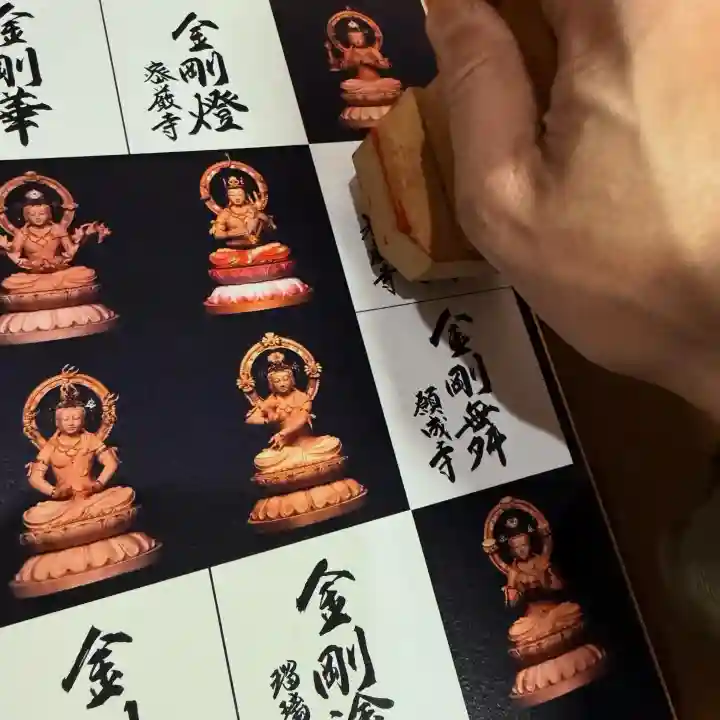 金剛華
金剛燈
厳寺
寺
金剛舞
願成寺
金
金剛塗
瑠璃